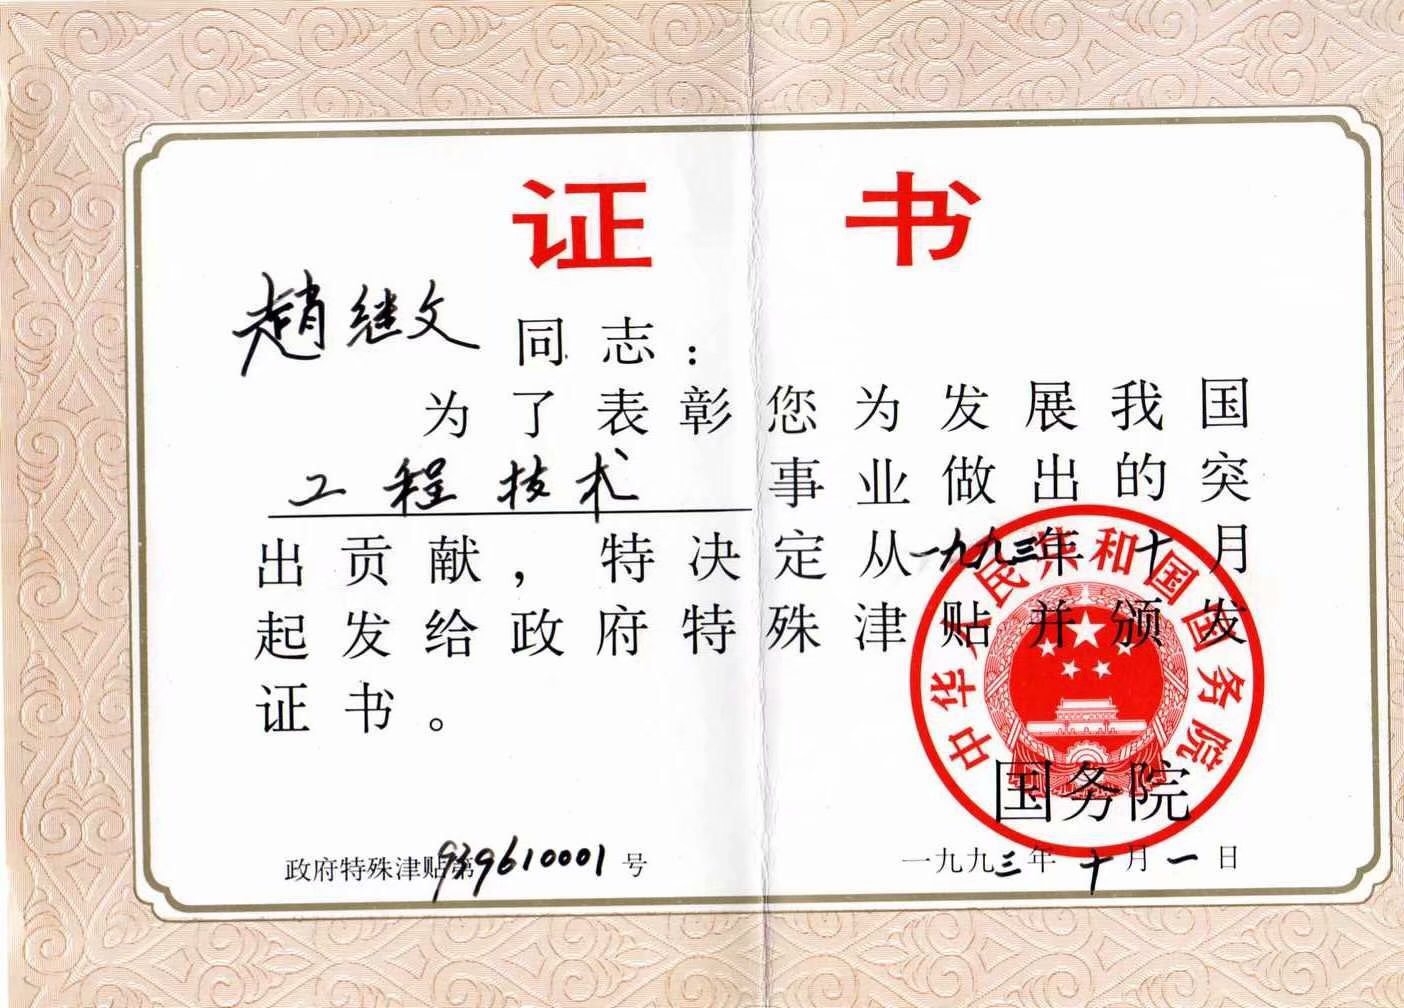 证 书
趙继文 同志：
为了表彰您为发展我国
工程技术 事业做出的突
出贡献，特决定从一九九三年十月
起发给政府特殊津贴并颁发
证书。
中华人民共和国国务院
国务院
政府特殊津贴第939610001号
一九九三年十月一日